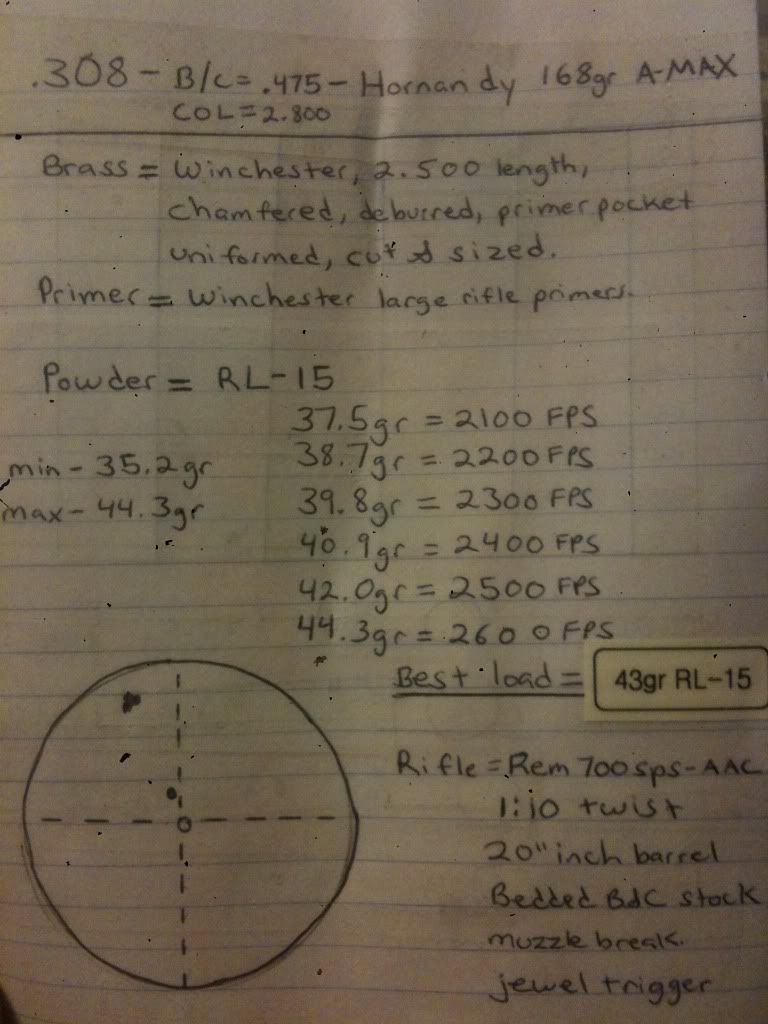 .308 - B/C = .475 - Hornandy 168gr A-MAX
COL = 2.800
Brass = Winchester, 2.500 length,
chamfered, deburred, primer pocket
uniformed, cut & sized.
Primer = Winchester large rifle primers.
Powder = RL-15
37.5gr = 2100 FPS
38.7gr = 2200 FPS
min - 35.2gr
39.8gr = 2300 FPS
max - 44.3gr
40.9gr = 2400 FPS
42.0gr = 2500 FPS
44.3gr = 2600 FPS
Best load = 43gr RL-15
Rifle = Rem 700 sps-AAC
1:10 twist
20" inch barrel
Bedded BdC stock
muzzle break.
jewel trigger